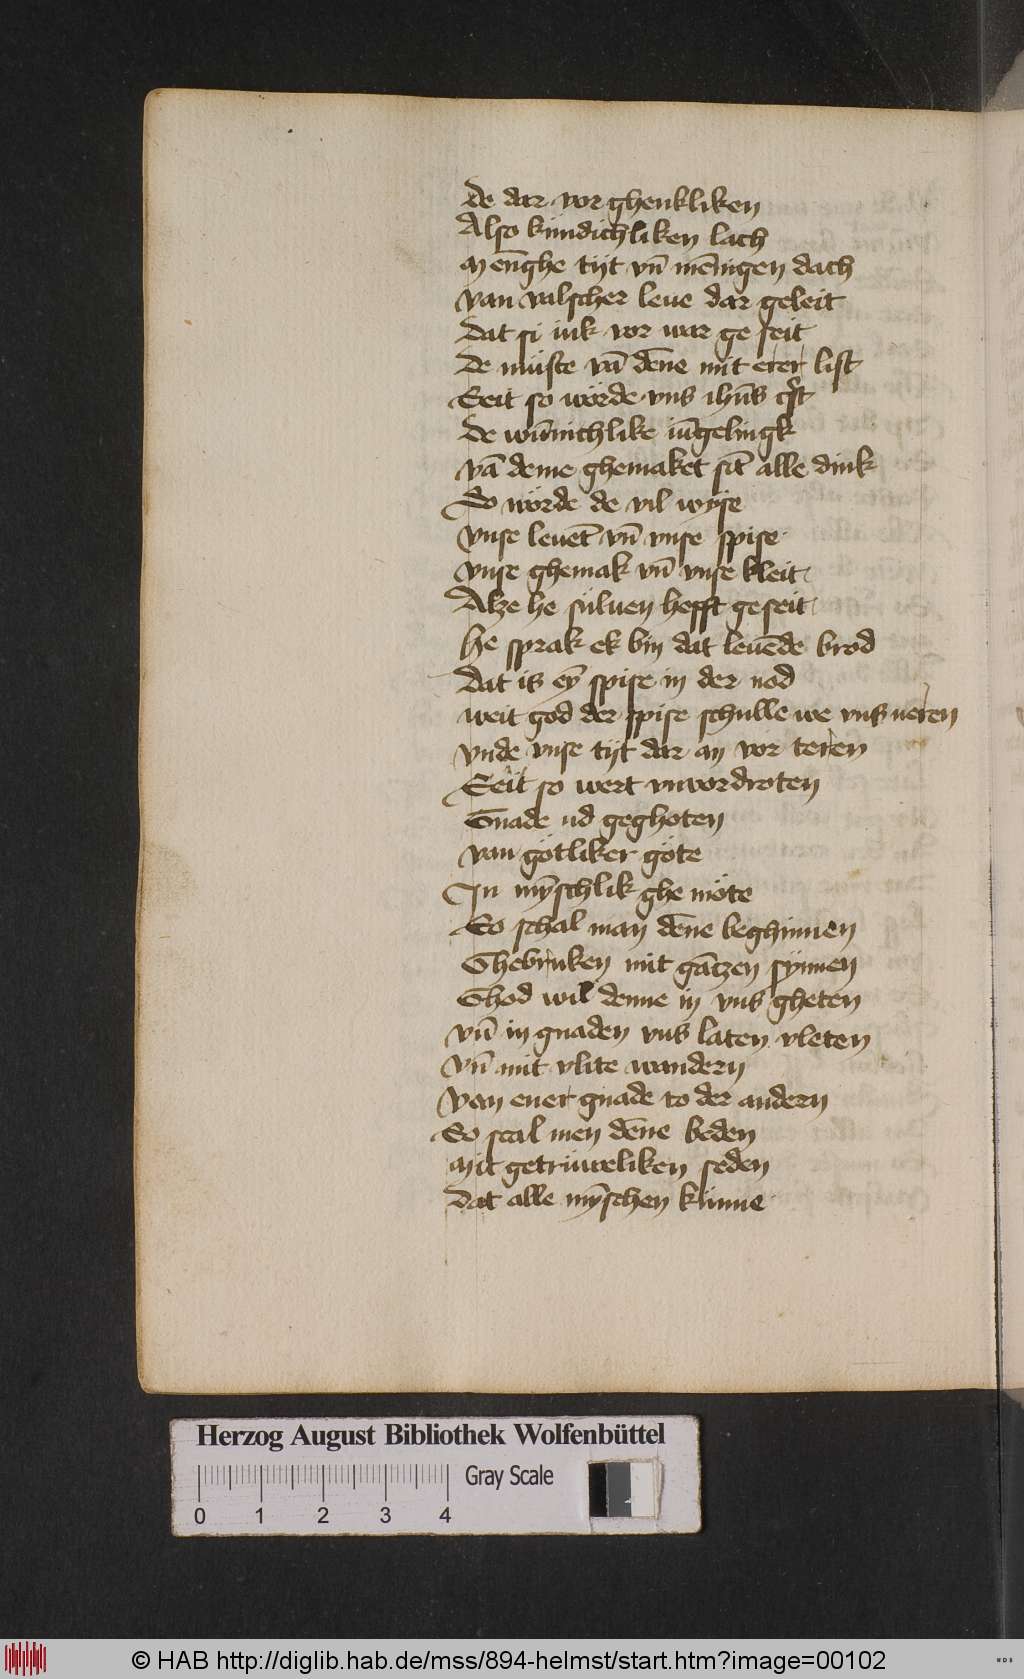 de dar vor ghenkliken
Also kůndichliken lach
Menghe tijt vn̄ mēnigen dach
van valscher leue dar geleit
dat si iuk vor war ge seit
de můste vā dēne mit erer list
Seit so wörde vns ihūs cr̄st
de wūnichlike iūgelingk
vā deme ghemaket sīt alle dink
So wörde de vil wyse
vnse leuēt vn̄ vnse spise
vnse ghemak vn̄ vnse kleit
Alze he sůluen hefft geseit
he sprak ek bin dat leuēde brod
dat is eȳ spise in der nod
weit god der spise schulle we vns neren
vnde vnse tijt dar an vor teren
Seit so wert vnvordroten
Gnade ud geghoten
van götliker göte
In mȳschlik ghe möte
So schal man dēne beghinnen
Ghebruken mit gātzen synnen
Ghod wil denne in vns gheten
vn̄ in gnaden vns laten vleten
vn̄ mit vlite wandern
Van ener gnade to der andern
So scal men dēne beden
Mit getrůweliken seden
dat alle mȳschen kůnne
Herzog August Bibliothek Wolfenbüttel
Gray Scale
0 1 2 3 4
© HAB http://diglib.hab.de/mss/894-helmst/start.htm?image=00102